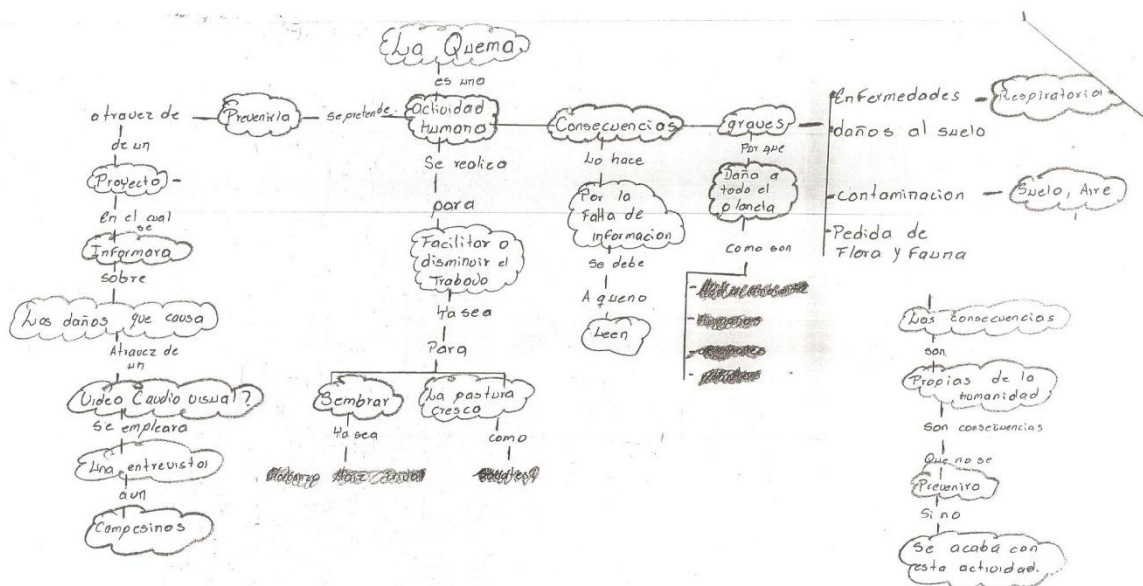 La Quema
es una
actividad
humana
se pretende
Prevenirla
atravez de
de un
Proyecto
En el cual
se
Informara
sobre
Los daños que causa
Atravez de
un
Video (audio visual?
Se empleara
Una entrevista
aun
Campesinos
Se realiza
para
Facilitar o
disminuir el
Trabado
Ya sea
Para
Sembrar
Ya sea
La pastura
cresca
como
Consecuencias
Lo hace
Por la
Falta de
informacion
Se debe
A queno
Leen
graves
Por que
Daña a
todo el
planeta
como son
Enfermedades
Respiratoria
daños al suelo
Contaminacion
Suelo, Aire
Pedida de
Flora y Fauna
Las consecuencias
son
Propias de la
humanidad
Son consecuencias
Que no se
Prevenira
Si no
Se acaba con
esta actividad.